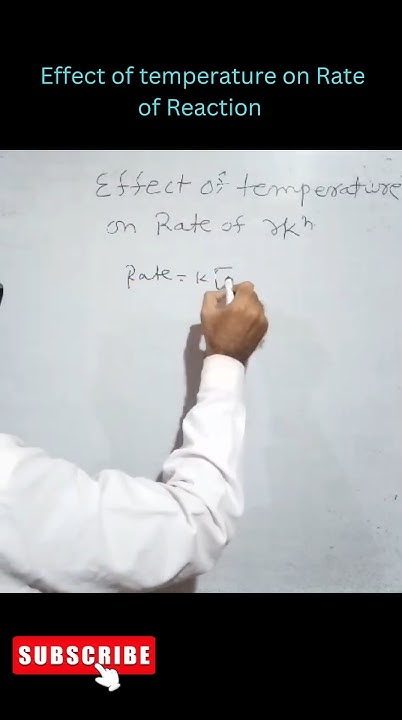 Effect of temperature on Rate
of Reaction
Effect of temperature
on Rate of rkⁿ
Rate = k
SUBSCRIBE